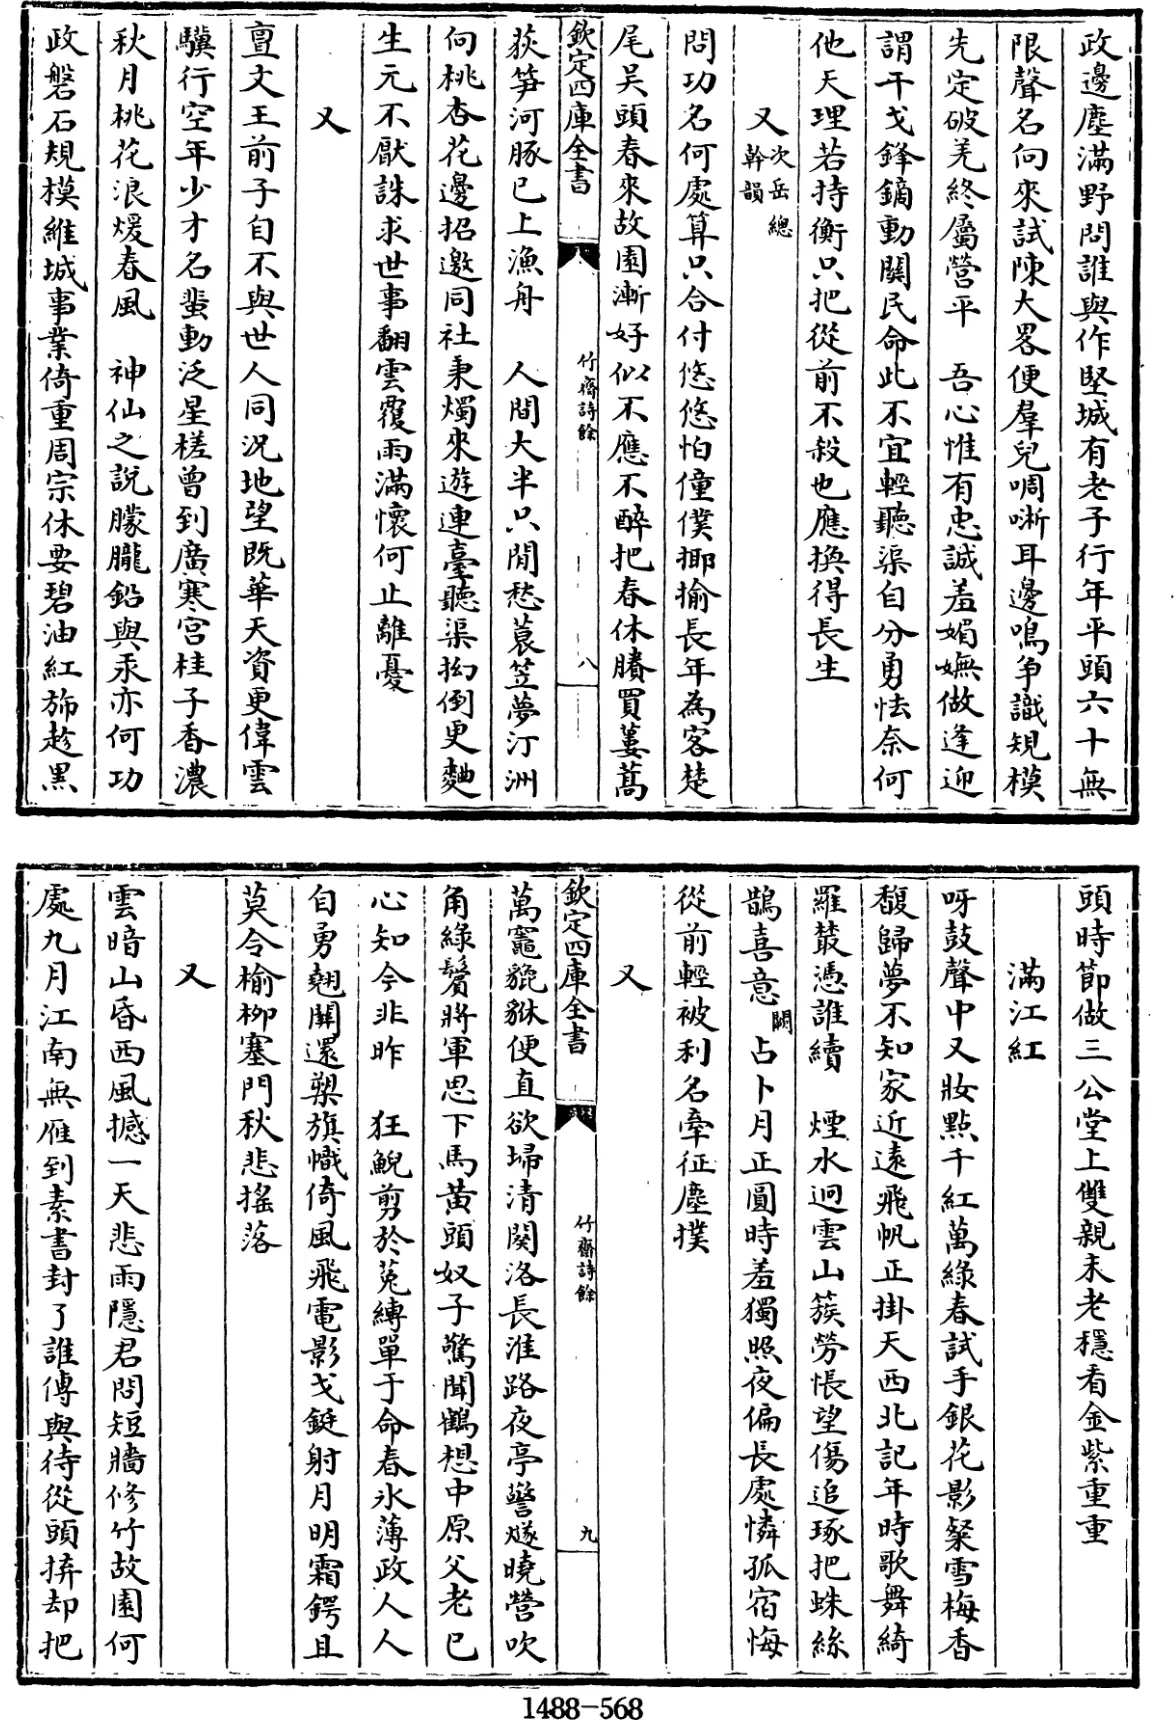 政邊塵滿野問誰與作堅城有老子行年平頭六十無
限聲名向來試陳大畧便羣兒啁哳耳邊鳴爭識規模
先定破羌終屬營平　吾心惟有忠誠羞媚嫵做逢迎
謂干戈鋒鏑動關民命此不宜輕聽渠自分勇怯奈何
他天理若持衡只把從前不殺也應換得長生
又次岳總幹韻
問功名何處算只合付悠悠怕僮僕揶揄長年為客楚
尾吳頭春來故園漸好似不應不醉把春休賸買蔞蒿
欽定四庫全書　竹齋詩餘　八
荻笋河豚已上漁舟　人間大半只閒愁蓑笠夢汀洲
向桃杏花邊招邀同社秉燭來遊連臺聽渠拗倒更麯
生元不厭誅求世事翻雲覆雨滿懷何止離憂
又
亶文王前子自不與世人同況地望既華天資更偉雲
驥行空年少才名蜚動泛星槎曾到廣寒宮桂子香濃
秋月桃花浪煖春風　神仙之說朦朧鉛與汞亦何功
政磐石規模維城事業倚重周宗休要碧油紅斾趁黑
頭時節做三公堂上雙親未老穩看金紫重重
滿江紅
呀鼓聲中又妝點千紅萬綠春試手銀花影粲雪梅香
馥歸夢不知家近遠飛帆正掛天西北記年時歌舞綺
羅叢憑誰續　煙水迥雲山簇勞悵望傷追琢把蛛絲
鵲喜意闕占卜月正圓時羞獨照夜偏長處憐孤宿悔
從前輕被利名牽征塵撲
又
欽定四庫全書　竹齋詩餘　九
萬竈貔貅便直欲埽清關洛長淮路夜亭警燧曉營吹
角綠鬢將軍思下馬黃頭奴子驚聞鶴想中原父老已
心知今非昨　狂鯢剪於菟縛單于命春冰薄政人人
自勇翹關還槊旗幟倚風飛電影戈鋋射月明霜鍔且
莫令榆柳塞門秋悲搖落
又
雲暗山昏西風撼一天悲雨隱君問短牆修竹故園何
處九月江南無雁到素書封了誰傳與待從頭拚却把
1488-568